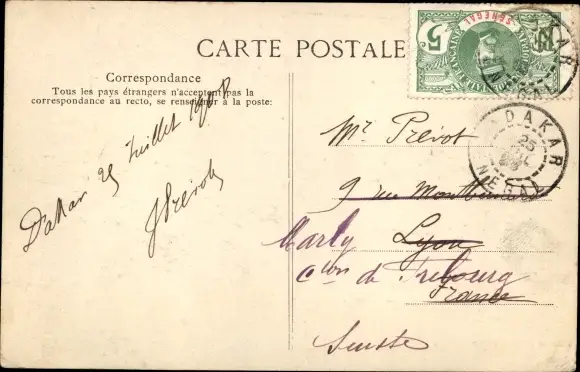 CARTE POSTALE
Correspondance
Tous les pays étrangers n'acceptent pas la
correspondance au recto, se renseigner à la poste:
Dakar 25 Juillet 1908
J Prévot
SENEGAL
5
DAKAR
SÉNÉGAL
DAKAR
25
SÉNÉGAL
Mr Prévot
9 rue
Marly Lyon
Cton de Fribourg
France
Suisse